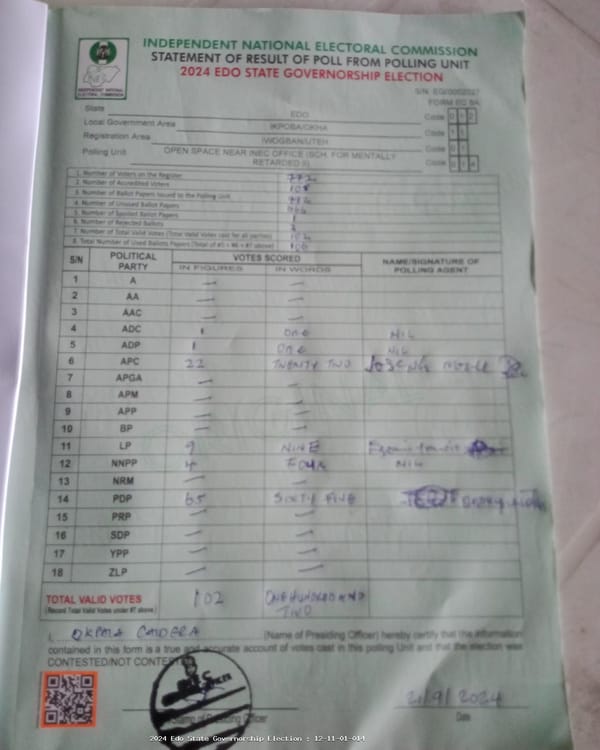 INDEPENDENT NATIONAL ELECTORAL COMMISSION
STATEMENT OF RESULT OF POLL FROM POLLING UNIT
2024 EDO STATE GOVERNORSHIP ELECTION
INDEPENDENT NATIONAL ELECTORAL COMMISSION
FORM EC 8A
State EDO Code 1 2
Local Government Area IKPOBA/OKHA Code 1 1
Registration Area IWOGBAN/UTEH Code 0 1
Polling Unit OPEN SPACE NEAR INEC OFFICE (SCH. FOR MENTALLY RETARDED II) Code 0 1 4
1. Number of Voters on the Register 772
2. Number of Accredited Voters
3. Number of Ballot Papers Issued to the Polling Unit
4. Number of Unused Ballot Papers
5. Number of Spoiled Ballot Papers
6. Number of Rejected Ballots
7. Number of Total Valid Votes (Total Valid Votes cast for all parties) 102
8. Total Number of Used Ballots Papers (Total of #5 + #6 + #7 above) 106
S/N POLITICAL PARTY VOTES SCORED NAME/SIGNATURE OF POLLING AGENT
IN FIGURES IN WORDS
1 A — —
2 AA — —
3 AAC — —
4 ADC 1 ONE NIL
5 ADP 1 ONE NIL
6 APC 22 TWENTY TWO
7 APGA — —
8 APM — —
9 APP — —
10 BP — —
11 LP 9 NINE
12 NNPP 4 FOUR NIL
13 NRM — —
14 PDP 65 SIXTY FIVE
15 PRP — —
16 SDP — —
17 YPP — —
18 ZLP — —
TOTAL VALID VOTES 102 ONE HUNDRED AND TWO
(Record Total Valid Votes under #7 above)
I, (Name of Presiding Officer) hereby certify that the information
contained in this form is a true and accurate account of votes cast in this polling Unit and that the election was
CONTESTED/NOT CONTESTED
21/9/2024
Officer Date
2024 Edo State Governorship Election : 12-11-01-014